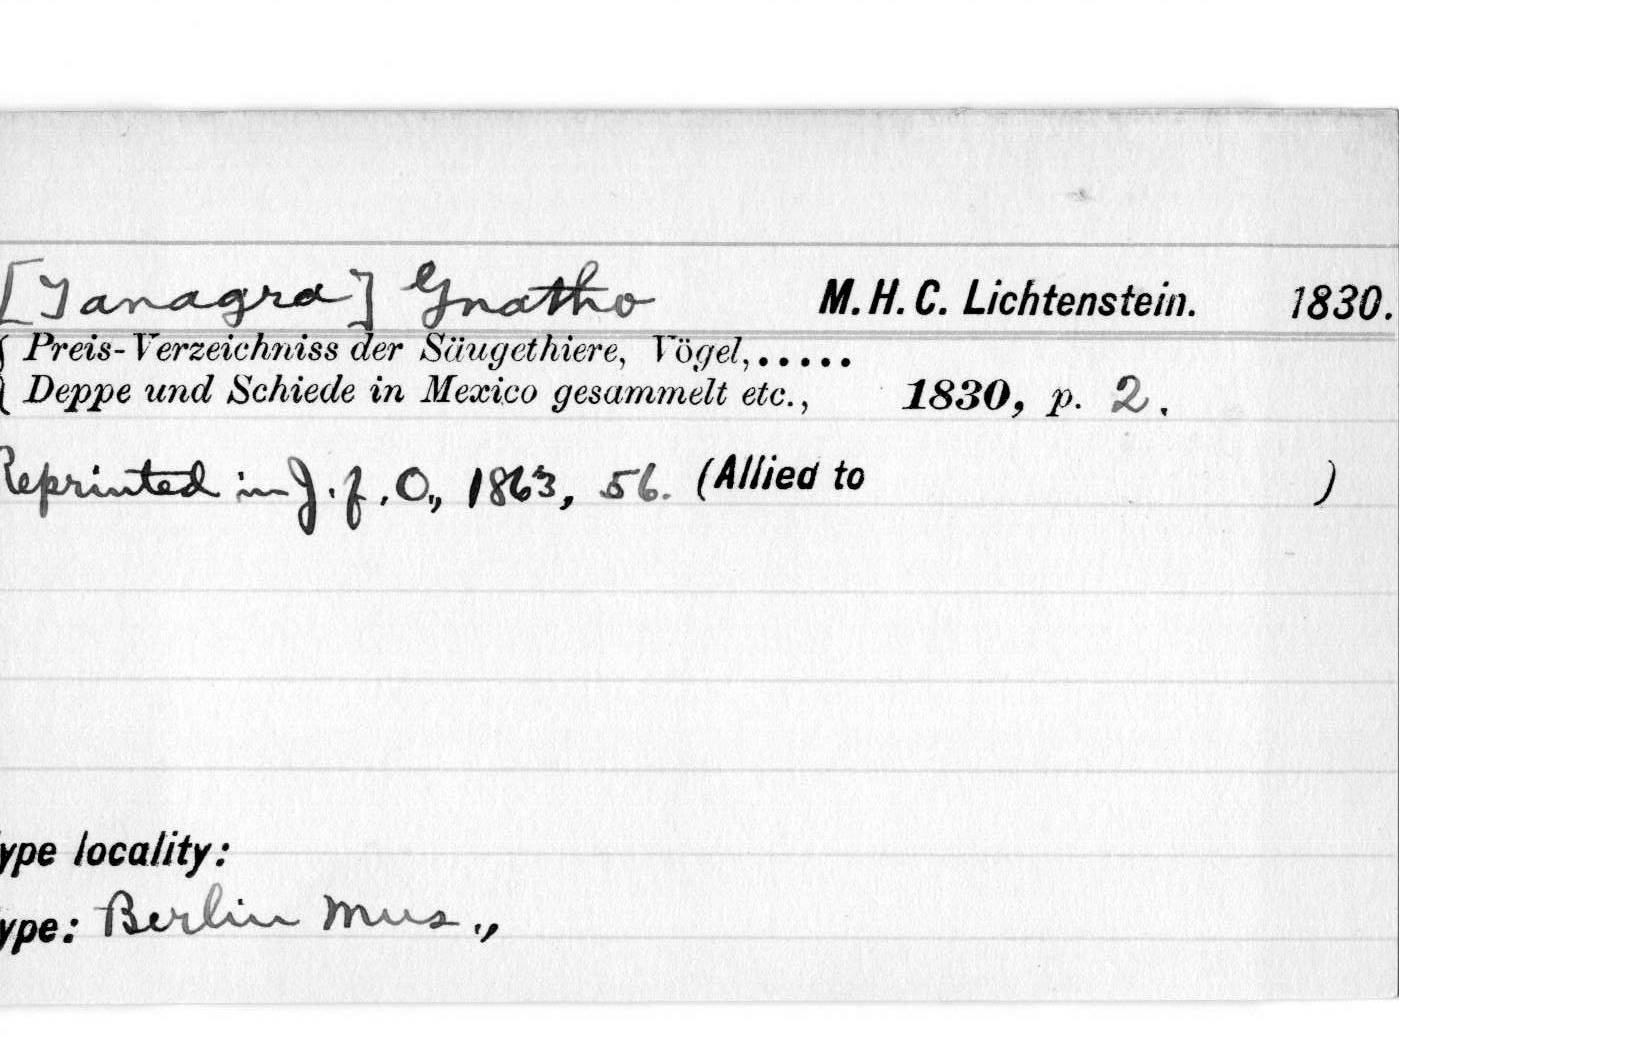 [Tanagra] Gnatho M. H. C. Lichtenstein. 1830.
{ Preis-Verzeichniss der Säugethiere, Vögel,.....
Deppe und Schiede in Mexico gesammelt etc., 1830, p. 2.
Reprinted in J. f. O., 1863, 56. (Allied to )
ype locality:
ype: Berlin Mus.,